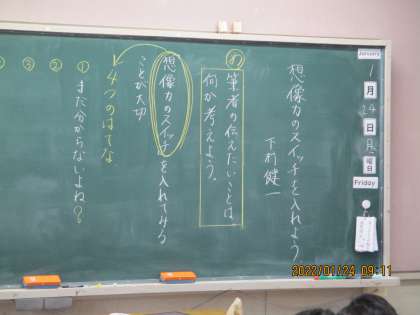 January
1
月
24
日
月
曜日
Friday
想像力のスイッチを入れよう
下村健一
め
筆者の伝えたいことは、
何か考えよう。
想像力のスイッチを入れてみる
ことが大切
4つのはてな
①まだ分からないよね?
②
③
2022/01/24 09:11